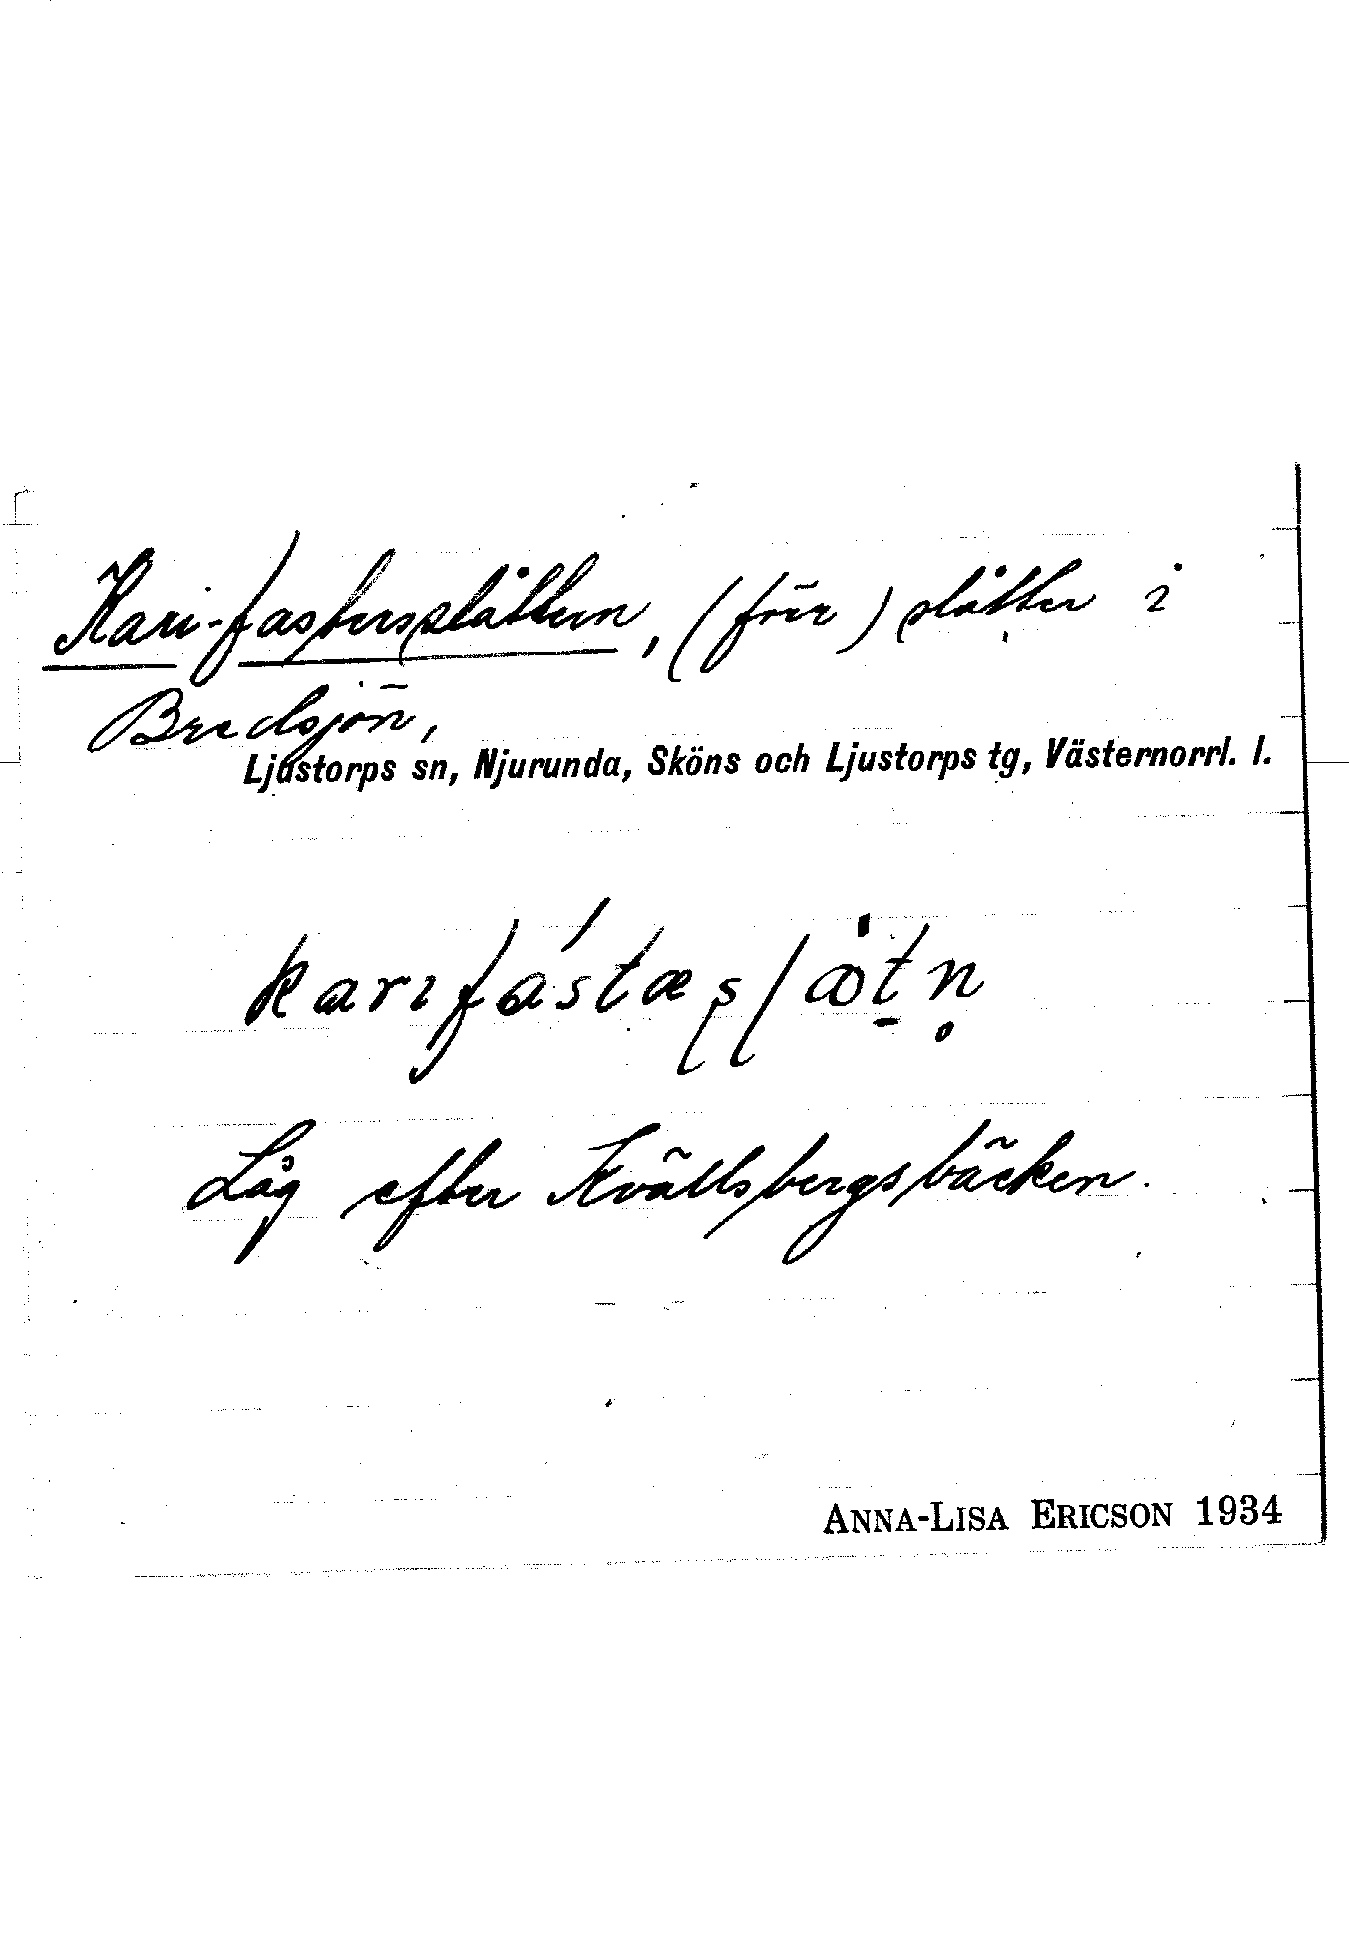 Kari-fastersslåttern, (förr) slåtter i
Bredsjön,
Ljustorps sn, Njurunda, Sköns och Ljustorps tg, Västernorrl. l.
Låg efter Kvällsbergsbäcken.
ANNA-LISA ERICSON 1934